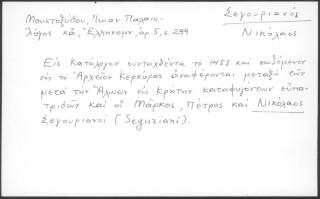 Σεγουριανός
Νικόλαος
Μουστοξύδου, Ἰωαν. Παλαιο-
λόγος κἄ, Ἑλληνομν, ἀρ. 5, σ. 299
Εἰς Κατάλογον συνταχθέντα τὸ 1453 καὶ σωζόμενον
εἰς τὸ Ἀρχεῖον Κερκύρας ἀναφέρονται μεταξὺ τῶν
μετὰ τὴν Ἅλωσιν εἰς Κρήτην καταφυγόντων εὐπα-
τριδῶν καὶ οἱ Μάρκος, Πέτρος καὶ Νικόλαος
Σεγουριανοί (Seguriani).